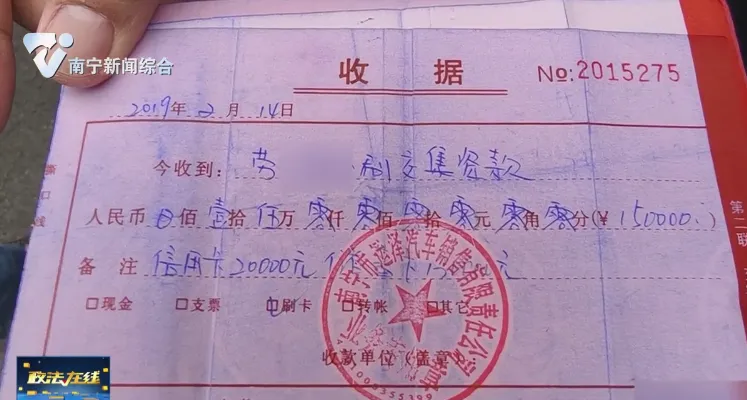 南宁新闻综合
收 据 No:2015275
2019年2月14日
今收到：劳 制交集资款
人民币 佰壹拾伍万零仟零佰零拾零元零角零分(¥150000.)
备 注 信用卡20000元
□现金 □支票 ☑刷卡 □转帐 □其它
收款单位(盖章)
汽车销售有限责任公司
第二联
政法在线